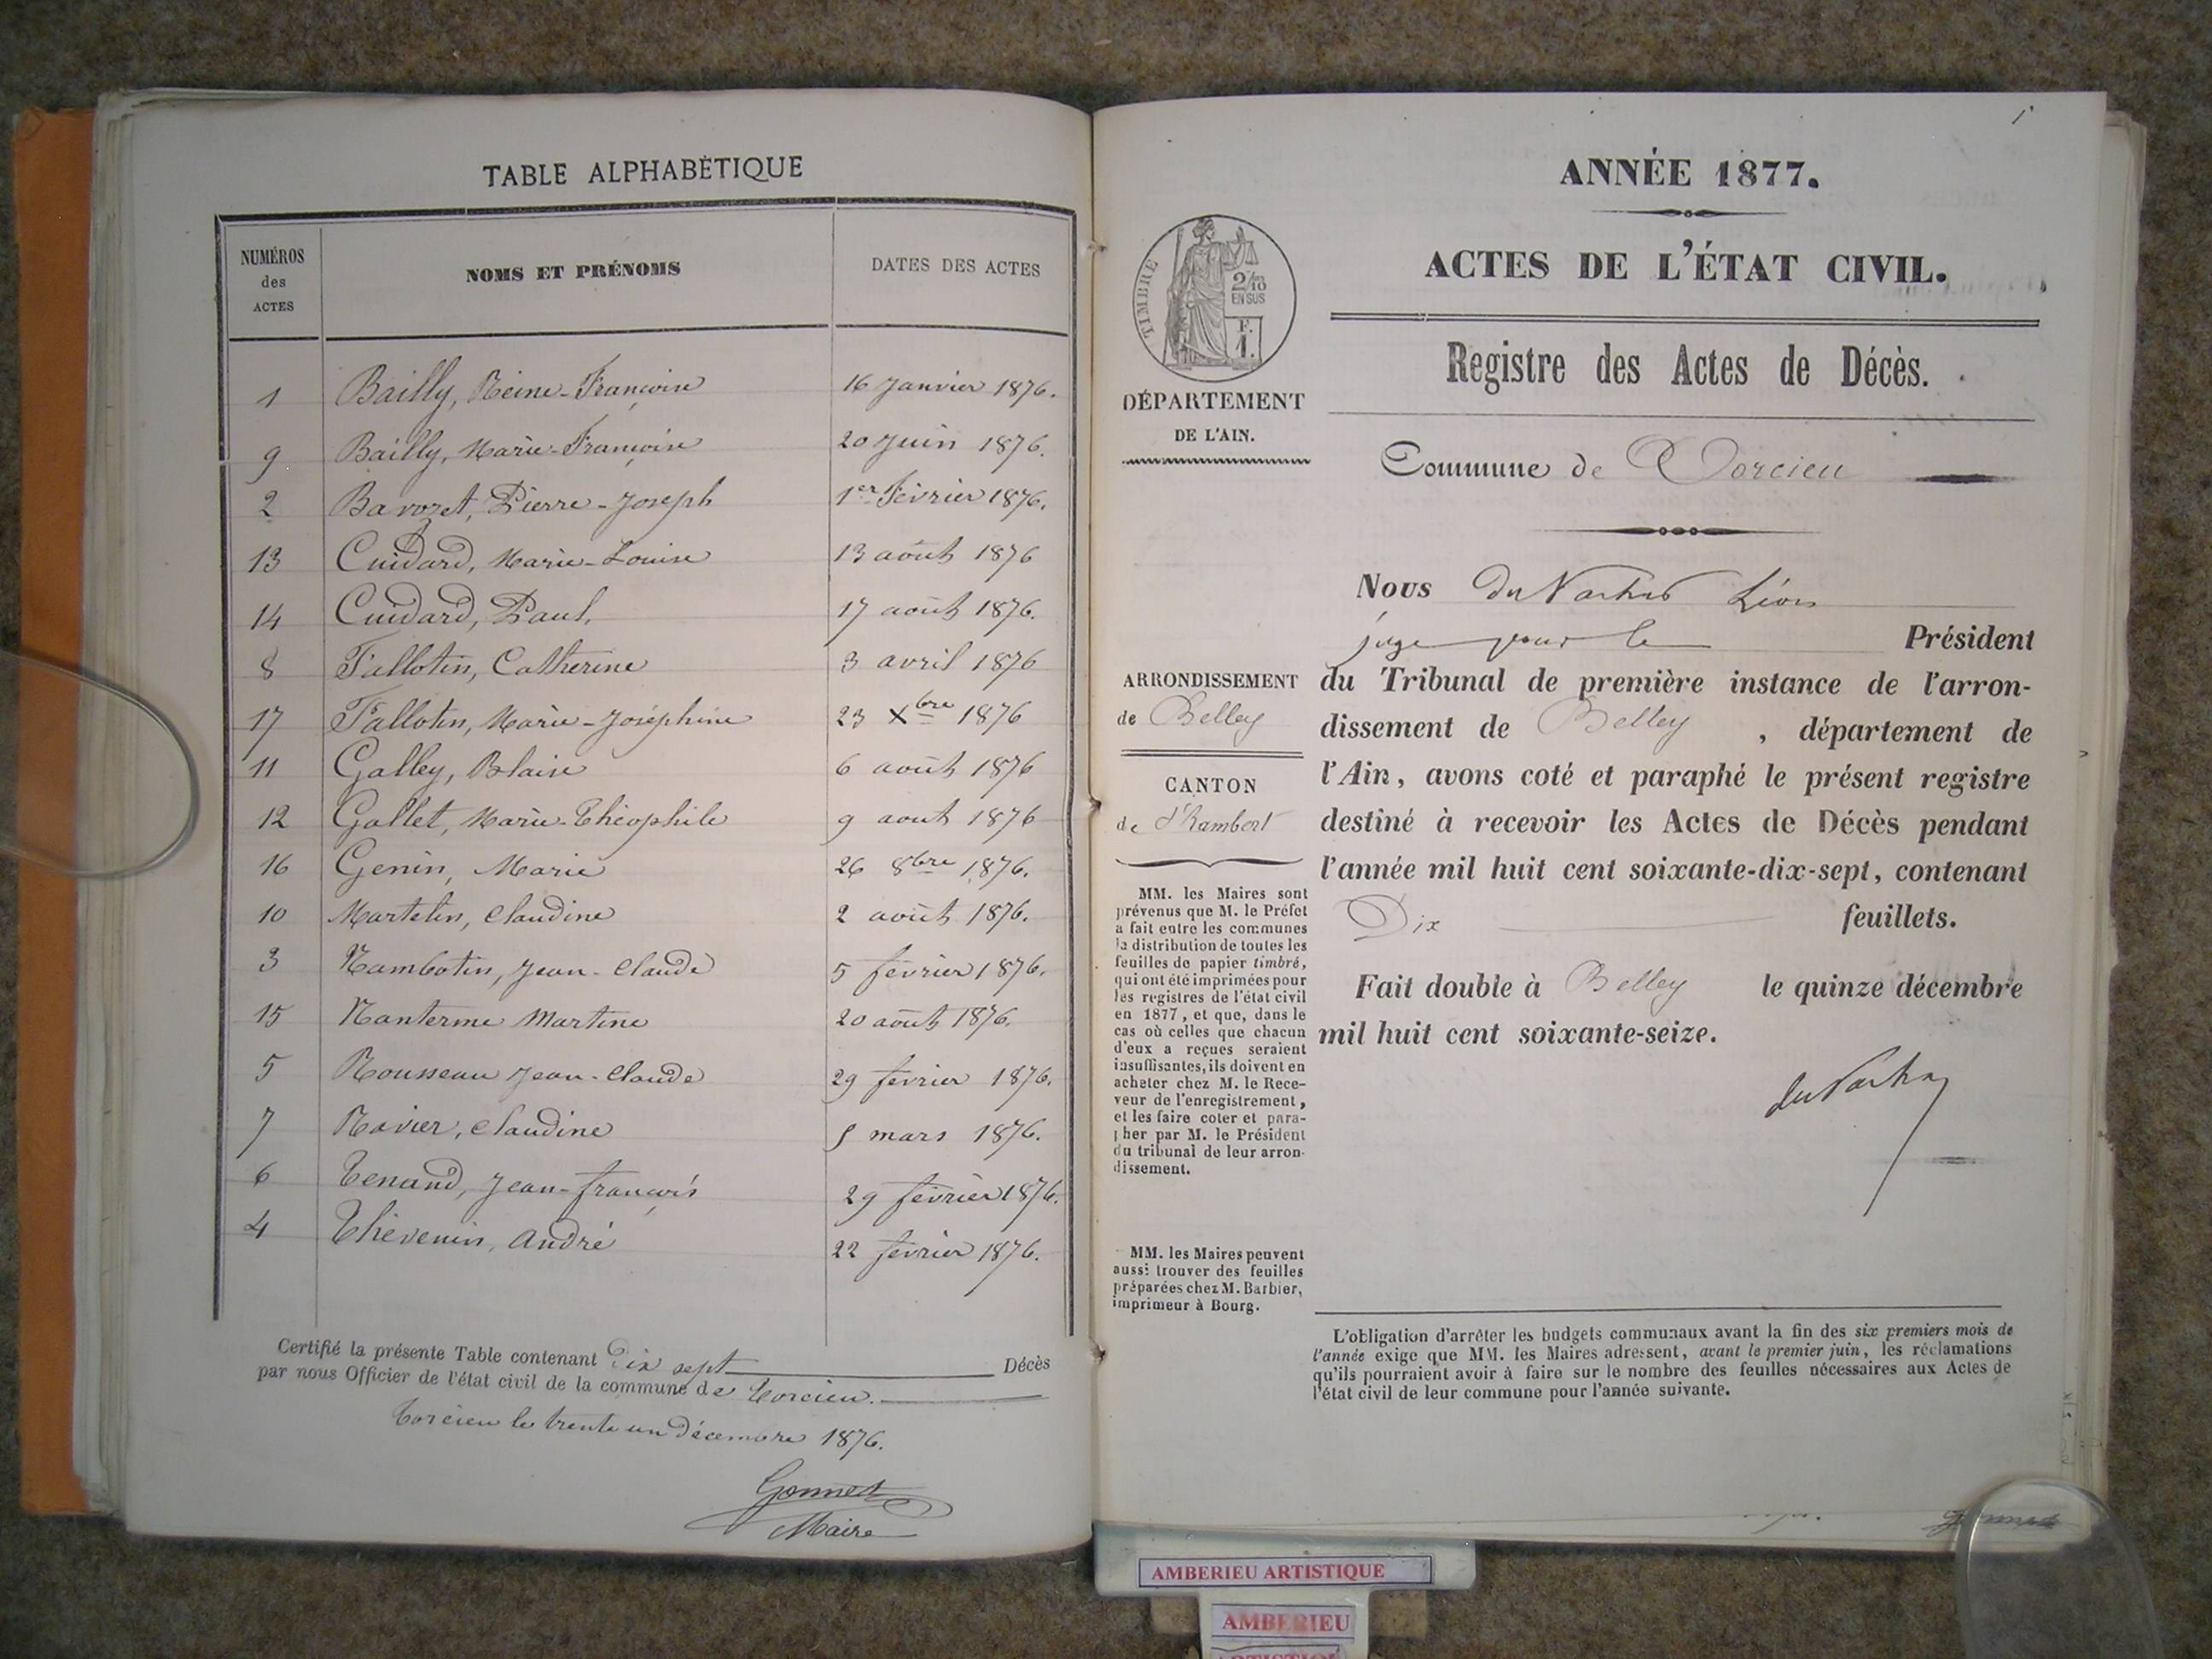 TABLE ALPHABÉTIQUE
NUMÉROS des ACTES
NOMS ET PRÉNOMS
DATES DES ACTES
1 Bailly, Reine-Françoise 16 Janvier 1876.
9 Bailly, Marie-Françoise 20 Juin 1876.
2 Bavozet, Pierre-Joseph 1er Février 1876.
13 Cuidard, Marie-Louise 13 août 1876
14 Cuidard, Paul, 17 août 1876.
8 Fallotin, Catherine 3 avril 1876
17 Fallotin, Marie-Joséphine 23 Xbre 1876
11 Galley, Blaise 6 août 1876
12 Gallet, Marie-Théophile 9 aout 1876
16 Genin, Marie 26 8bre 1876.
10 Martelin, Claudine 2 août 1876.
3 Rambotin, Jean-Claude 5 février 1876.
15 Nanterme Martine 20 août 1876.
5 Rousseau Jean-Claude 29 février 1876.
7 Ravier, Claudine mars 1876.
6 Tenand, Jean-François 29 février 1876.
4 Thévenin, André 22 février 1876.
Certifié la présente Table contenant Dix sept Décès
par nous Officier de l'état civil de la commune de Torcieu.
Torcieu le trente un Décembre 1876.
Gonnet
Maire
1
ANNÉE 1877.
ACTES DE L'ÉTAT CIVIL.
Registre des Actes de Décès.
Commune de Torcieu
TIMBRE
2/10
EN SUS
F.
1.
DÉPARTEMENT
DE L'AIN.
ARRONDISSEMENT
de Belley
CANTON
de St Rambert
MM. les Maires sont
prévenus que M. le Préfet
a fait entre les communes
la distribution de toutes les
feuilles de papier timbré,
qui ont été imprimées pour
les registres de l'état civil
en 1877, et que, dans le
cas où celles que chacun
d'eux a reçues seraient
insuffisantes, ils doivent en
acheter chez M. le Rece-
veur de l'enregistrement,
et les faire coter et para-
pher par M. le Président
du tribunal de leur arron-
dissement.
MM. les Maires peuvent
aussi trouver des feuilles
préparées chez M. Barbier,
imprimeur à Bourg.
Nous Léon
juge pour le Président
du Tribunal de première instance de l'arron-
dissement de Belley , département de
l'Ain, avons coté et paraphé le présent registre
destiné à recevoir les Actes de Décès pendant
l'année mil huit cent soixante-dix-sept, contenant
Dix feuillets.
Fait double à Belley le quinze décembre
mil huit cent soixante-seize.
L'obligation d'arrêter les budgets communaux avant la fin des six premiers mois de
l'année exige que MM. les Maires adressent, avant le premier juin, les réclamations
qu'ils pourraient avoir à faire sur le nombre des feuilles nécessaires aux Actes de
l'état civil de leur commune pour l'année suivante.
AMBERIEU ARTISTIQUE
AMBERIEU
ARTISTIQUE